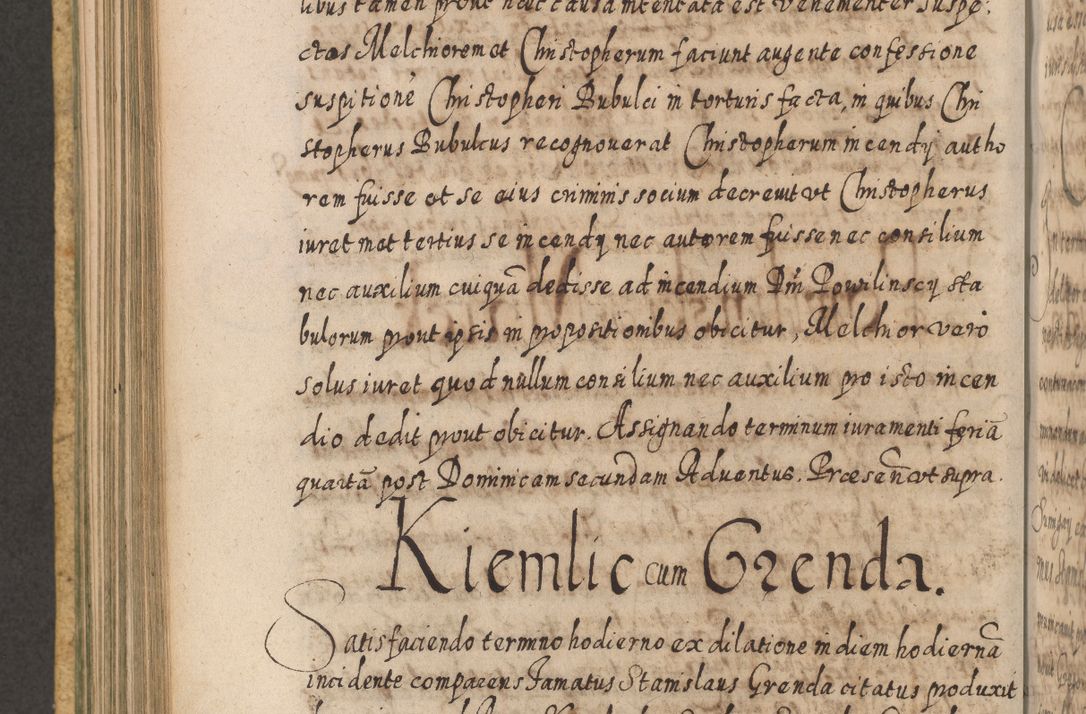 libus tamen prout haec causa intentata est vehementer suspe:
ctos Melchiorem et Christopherum faciunt augente confessione
suspitionē Christopheri Bubulci in torturis facta, in quibus Chri
stopherus Bubulcus recognouerat Christopherum incendij autho
rem fuisse et se eius criminis socium decreuit vt Christopherus
iuret met tertius se incendij nec autorem fuisse nec consilium
nec auxilium cuiquā dedisse ad incendium Dni Powilinscij sta
bulorum prout ipsis in propositionibus obicitur, Melchior vero
solus iuret quod nullum consilium nec auxilium pro isto incen
dio dedit prout obicitur. Assignando terminum iuramenti feriā
quartā post Dominicam secundam Aduentus. Præsen̄ vt supra.
Kiemlic cum Grenda.
Satisfaciendo termno hodierno ex dilatione in diem hodiernā
incidente comparens Famatus Stanislaus Grenda citatus produxit